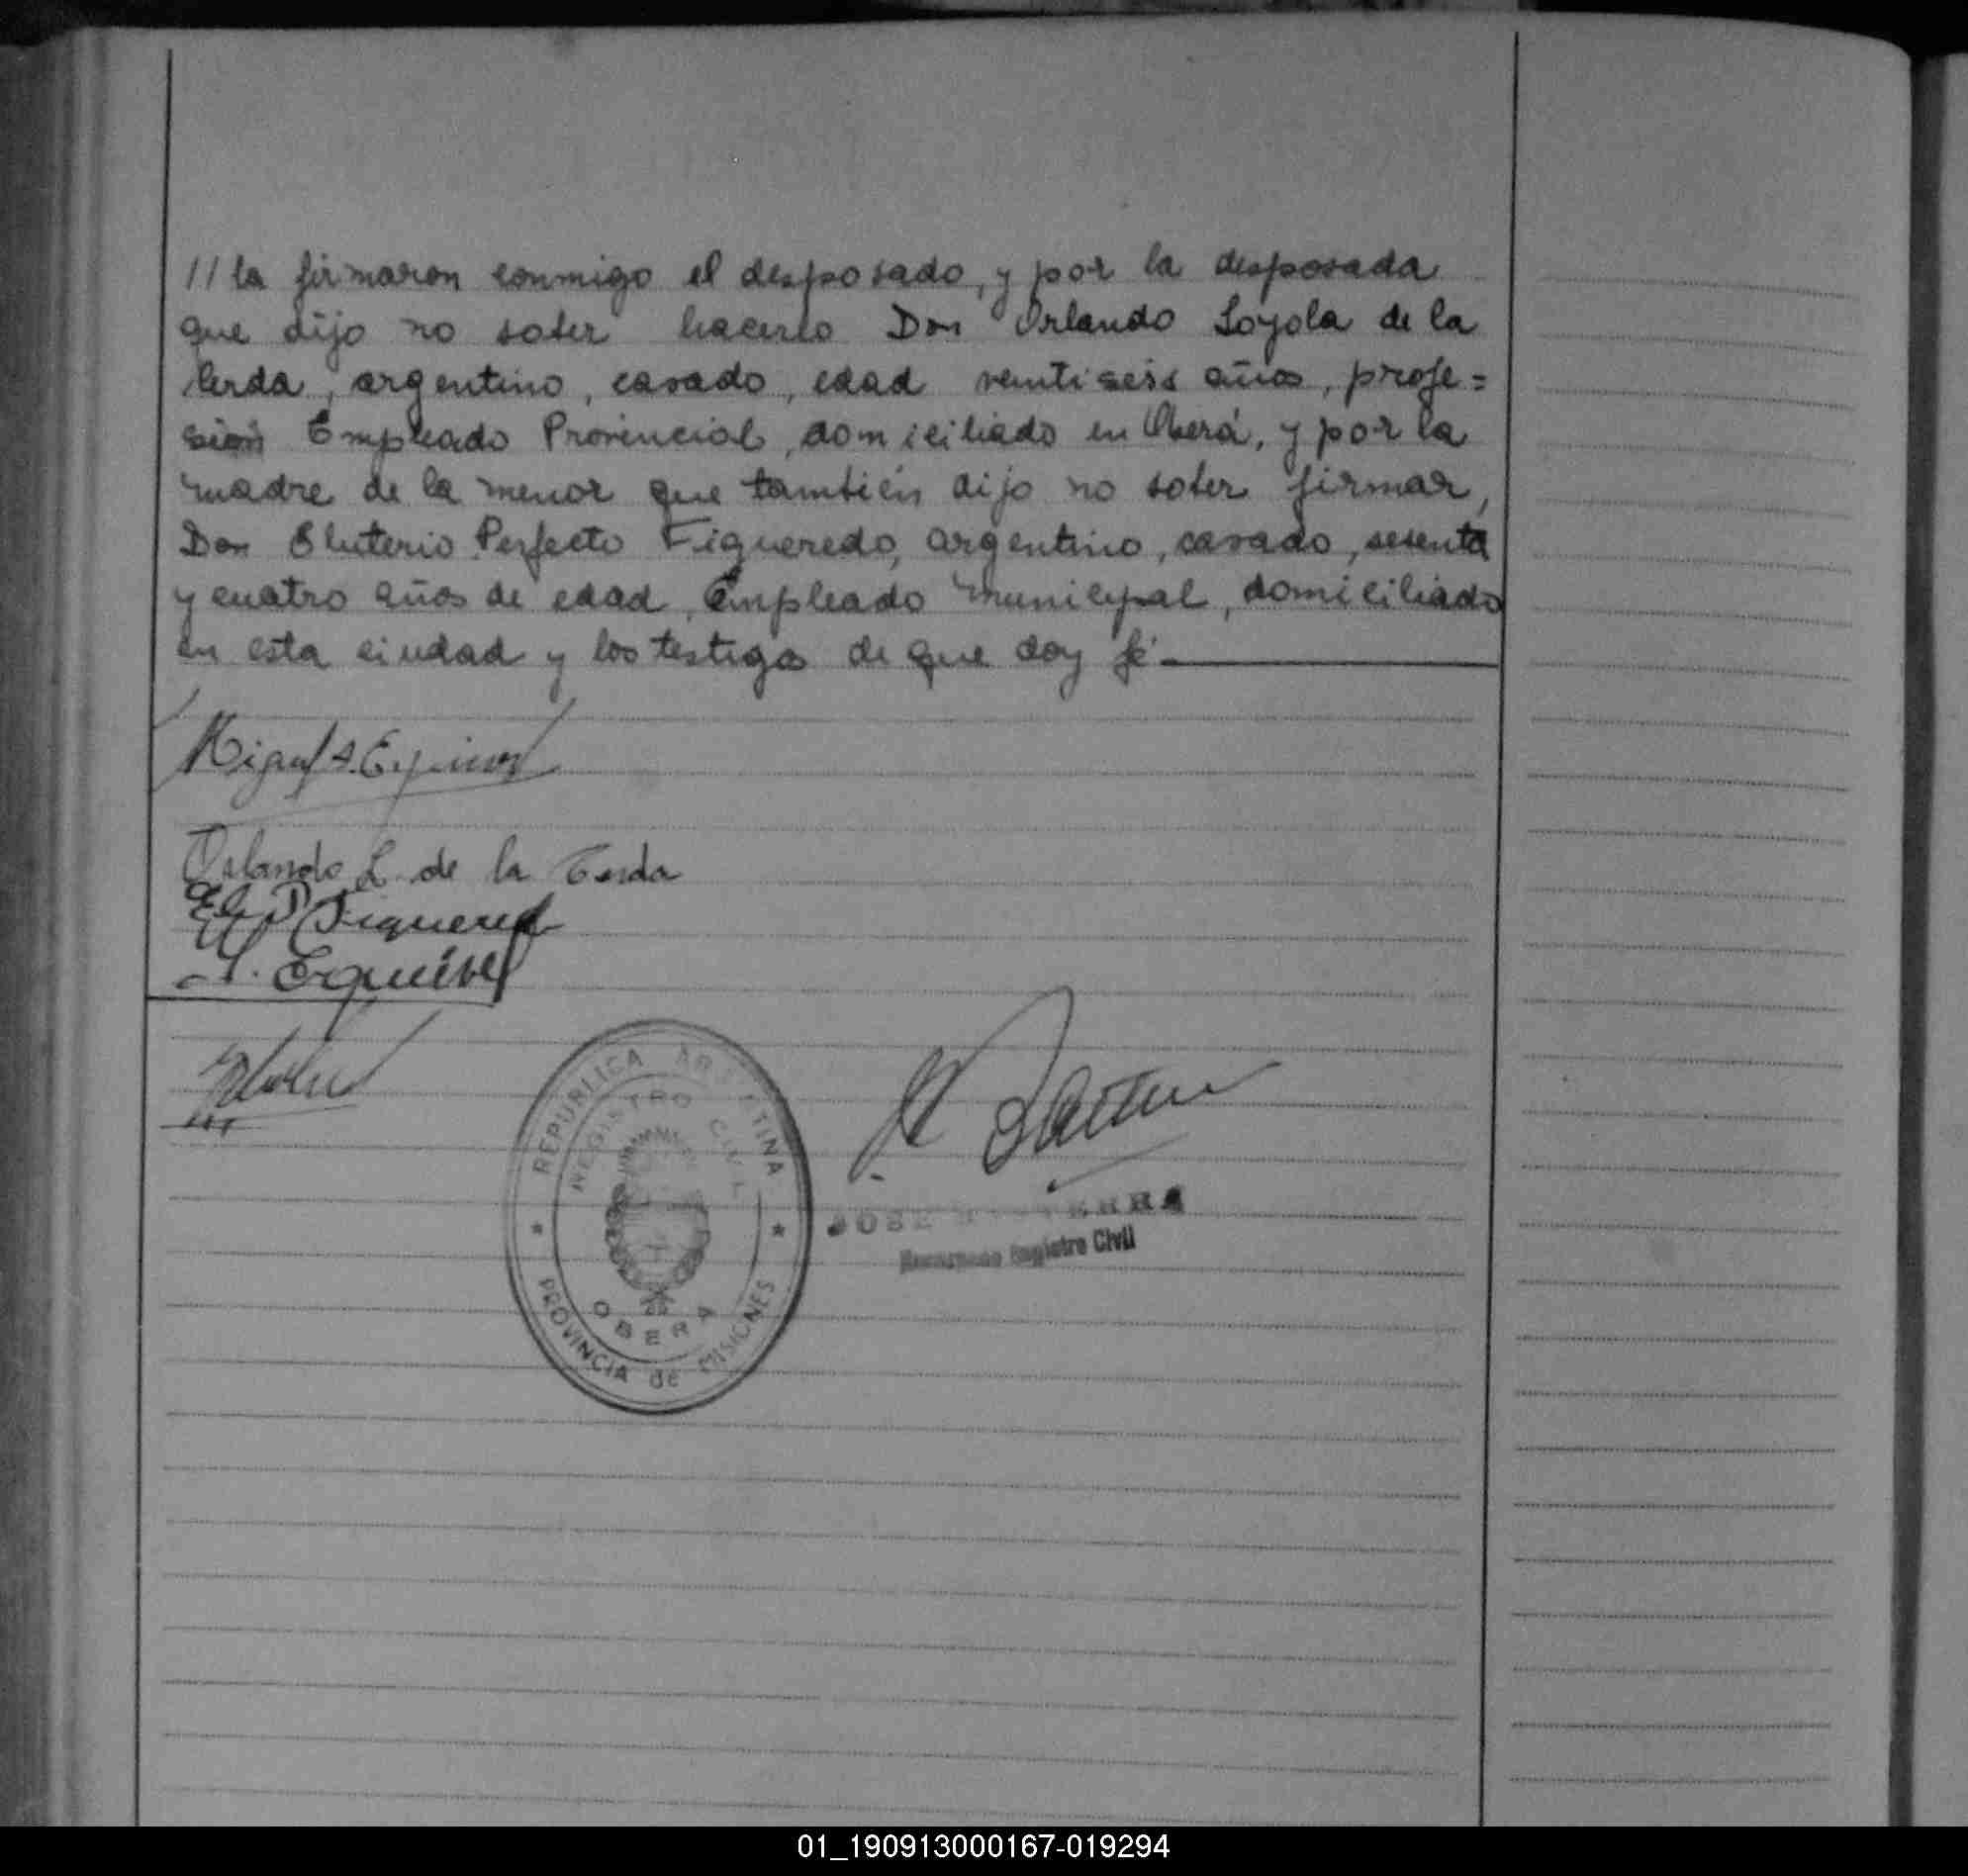 // la firmaron conmigo el desposado, y por la desposada
que dijo no saber hacerlo Don Orlando Loyola de la
Cerda, argentino, casado, edad veintiseis años, profe=
sión Empleado Provincial, domiciliado en Oberá, y por la
madre de la menor que también dijo no saber firmar,
Don Eluterio Perfecto Figueredo, argentino, casado, sesenta
y cuatro años de edad, Empleado Municipal, domiciliado
en esta ciudad y los testigos de que doy fé.
Miguel A. Espinoz
Orlando L. de la Cerda
El P Figueredo
Esquivel
REPUBLICA ARGENTINA
REGISTRO CIVIL
OBERA
PROVINCIA de MISIONES
JOSE
Encargado Registro Civil
01_190913000167-019294